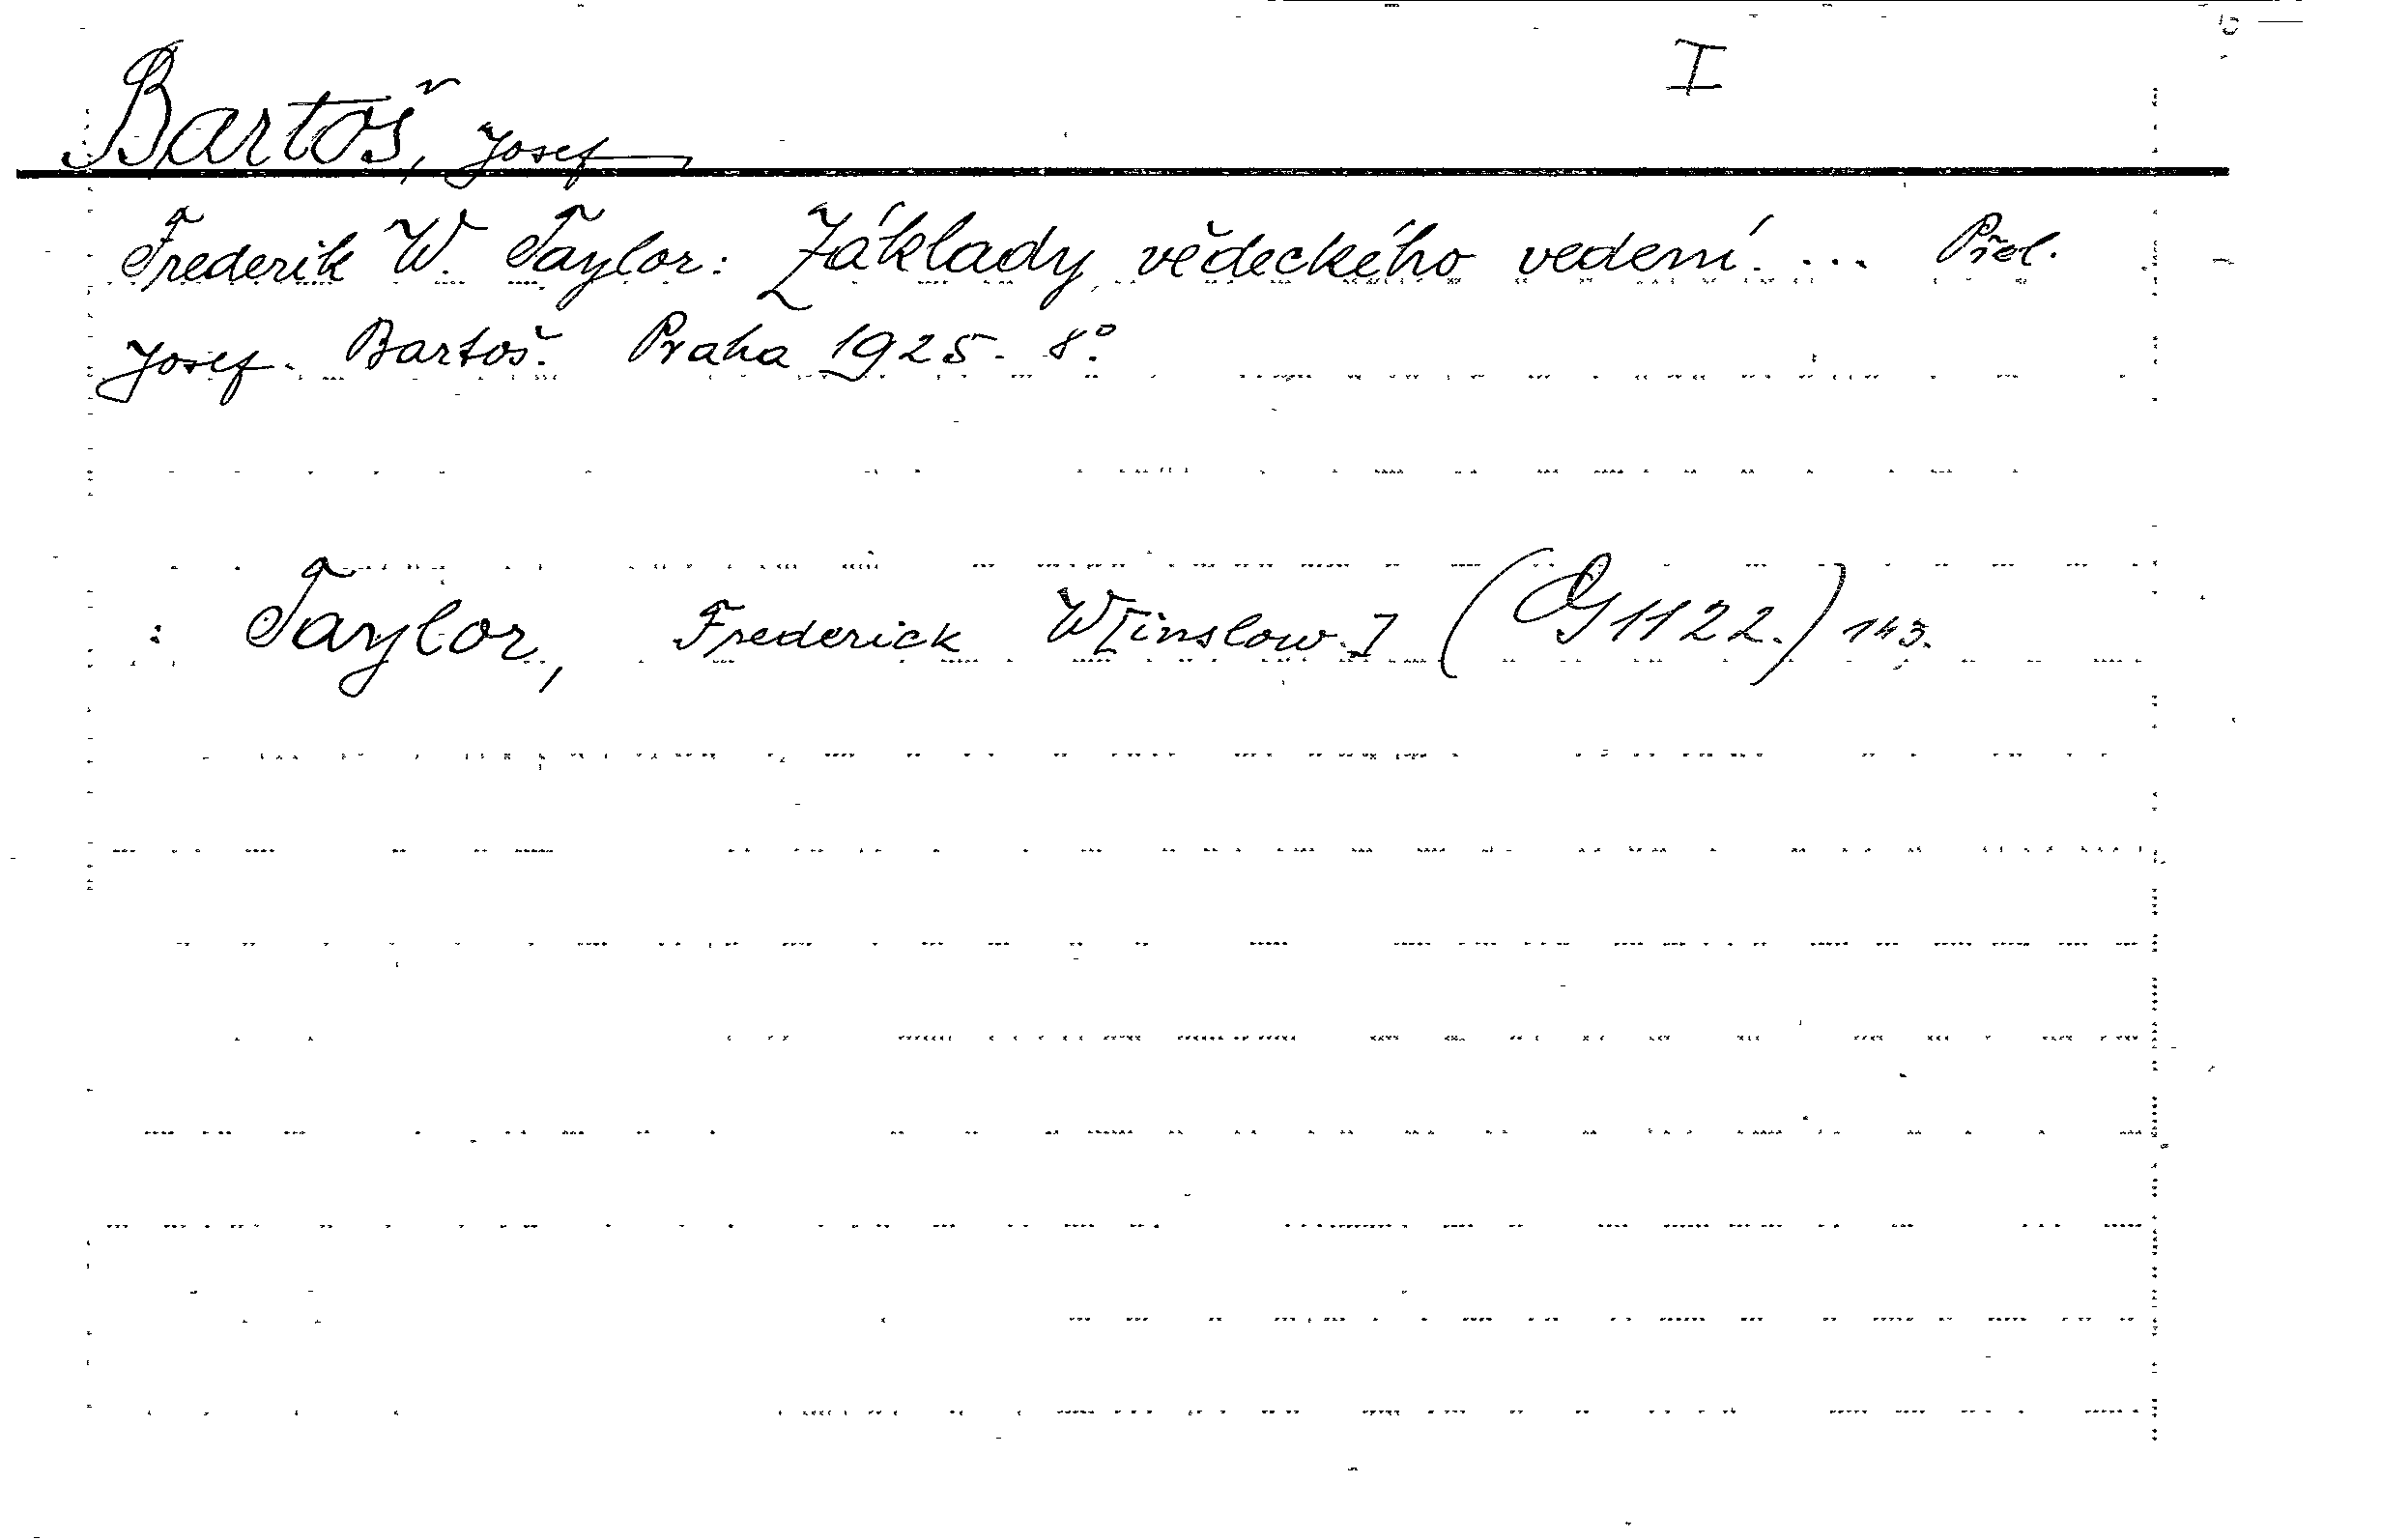 I
Bartoš, Josef
Frederik W. Taylor: Základy vědeckého vedení. ... Přel.
Josef Bartoš. Praha 1925. 8°.
: Taylor, Frederick W[inslow.] (G 1122.) 143.